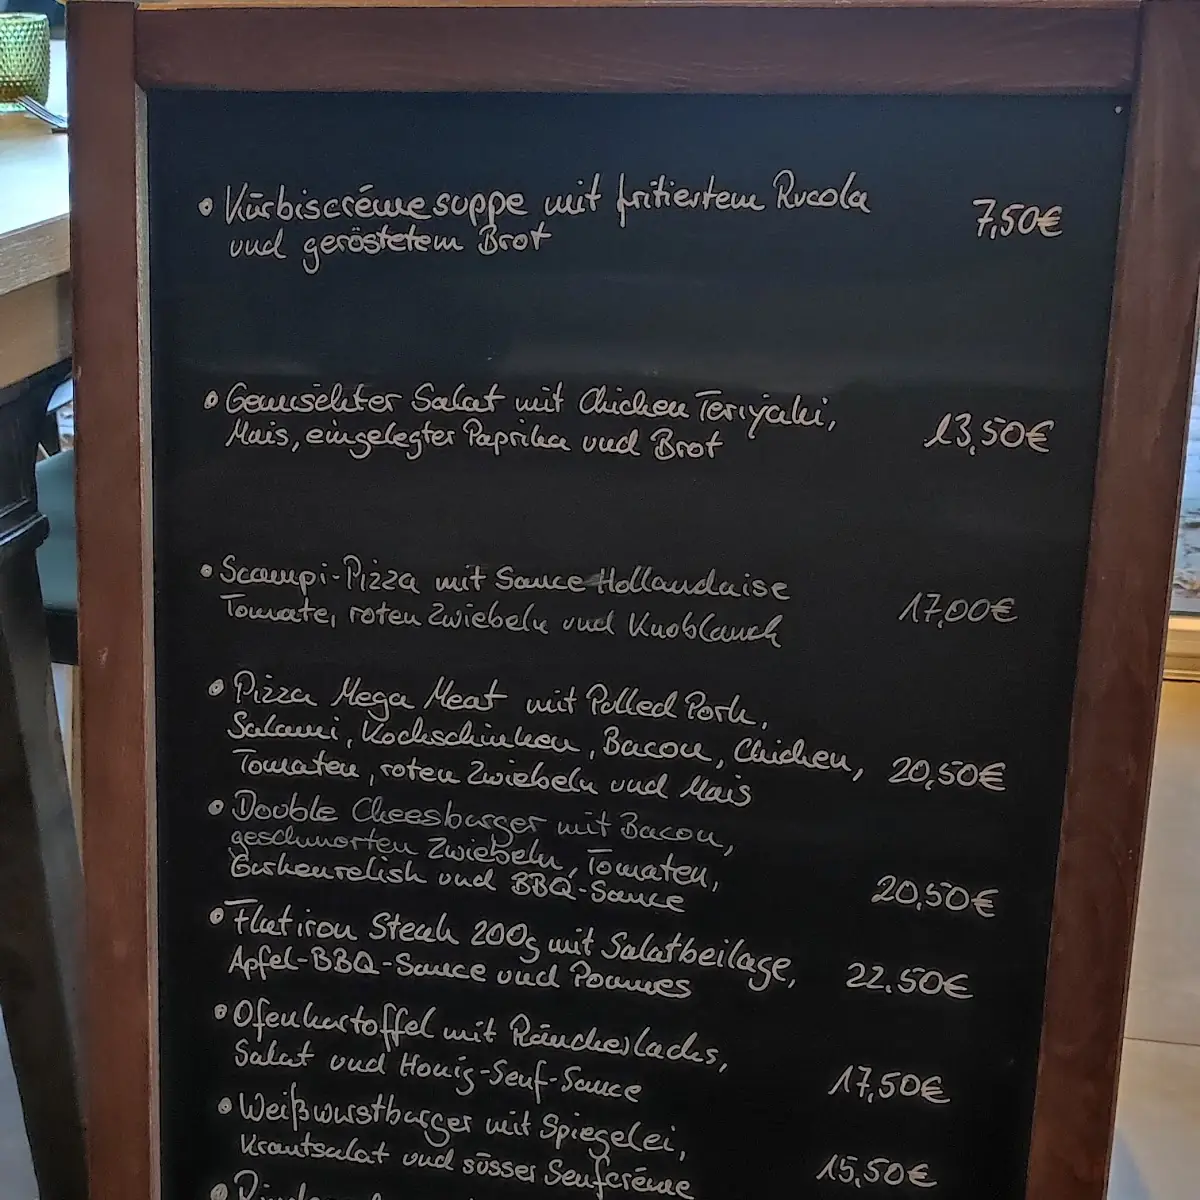 • Kürbiscrémesuppe mit fritiertem Rucola 7,50€
und geröstetem Brot
• Gemischter Salat mit Chicken Teriyaki,
Mais, eingelegter Paprika und Brot 13,50€
• Scampi-Pizza mit Sauce Hollandaise
Tomate, roten Zwiebeln und Knoblauch 17,00€
• Pizza Mega Meat mit Pulled Pork,
Salami, Kochschinken, Bacon, Chicken, 20,50€
Tomaten, roten Zwiebeln und Mais
• Double Cheesburger mit Bacon,
geschmorten Zwiebeln, Tomaten,
Gurkenrelish und BBQ-Sauce 20,50€
• Flat iron Steak 200g mit Salatbeilage,
Apfel-BBQ-Sauce und Pommes 22.50€
• Ofenkartoffel mit Räucherlachs,
Salat und Honig-Senf-Sauce 17,50€
• Weißwurstburger mit Spiegelei,
Krautsalat und süsser Senfcréme 15,50€